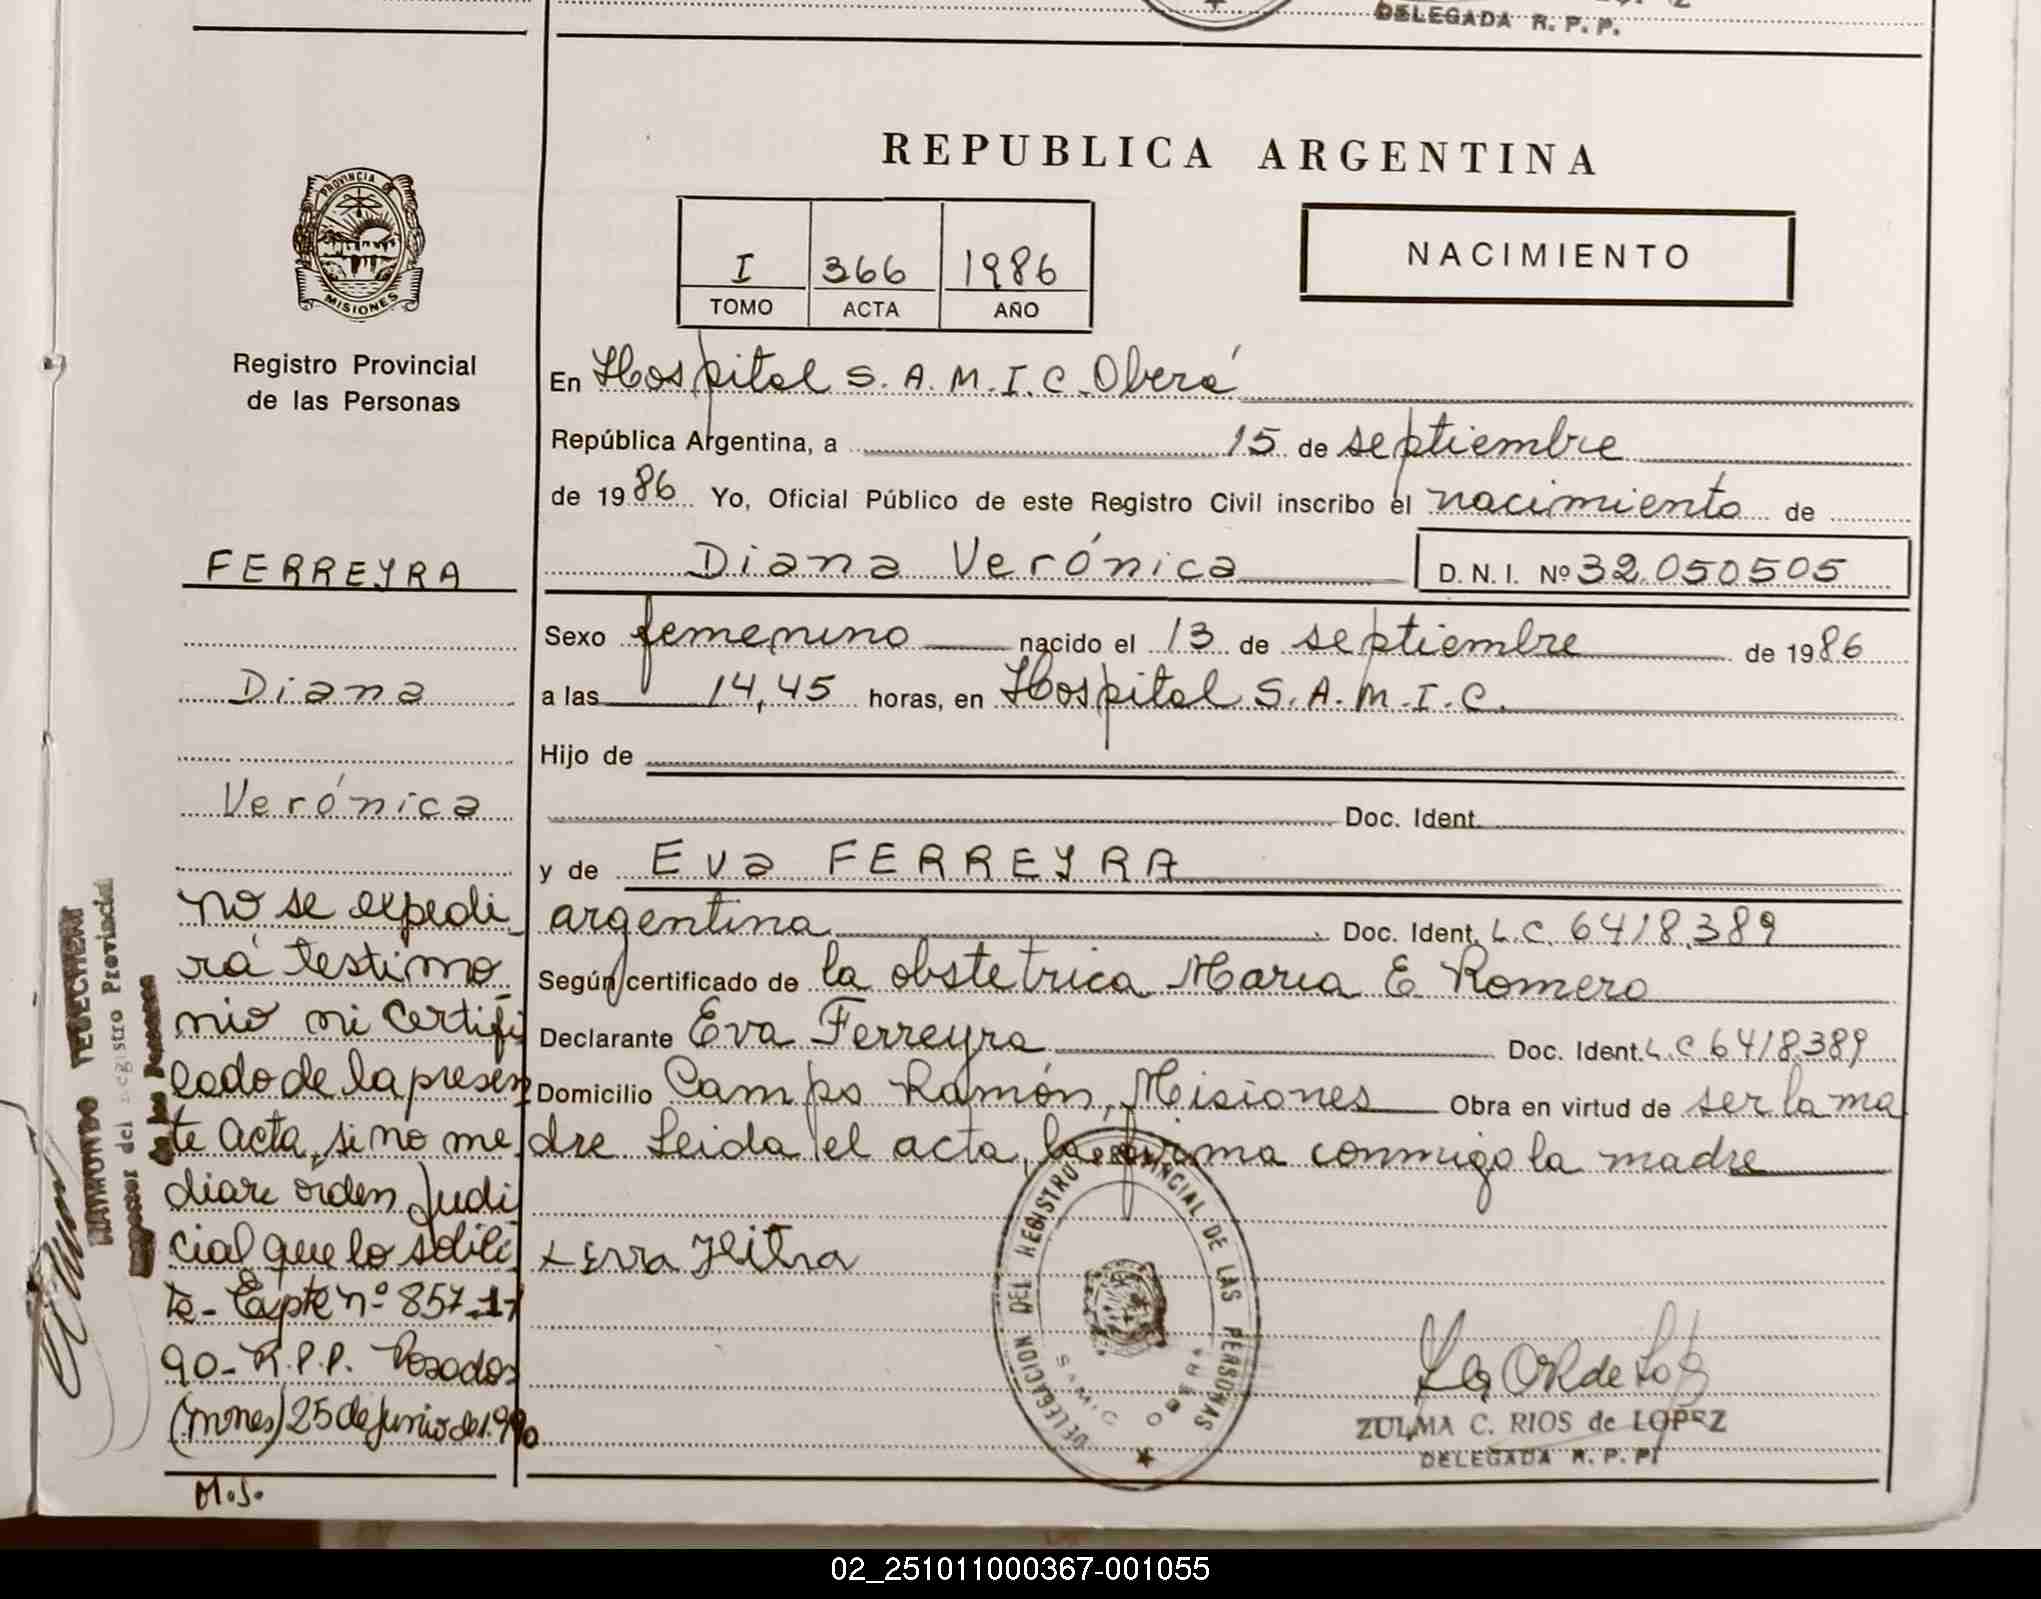 DELEGADA R. P. P.
REPUBLICA ARGENTINA
PROVINCIA DE
MISIONES
Registro Provincial
de las Personas
I 366 1986
TOMO ACTA AÑO
NACIMIENTO
En Hospital S.A.M.I.C. Oberá
República Argentina, a 15 de septiembre
de 1986 Yo, Oficial Público de este Registro Civil inscribo el nacimiento de
Diana Verónica D. N. I. Nº 32.050505
Sexo femenino nacido el 13 de septiembre de 1986
a las 14,45 horas, en Hospital S.A.M.I.C.
Hijo de
Doc. Ident.
y de Eva FERREYRA
argentina Doc. Ident. L.C. 6418.389
Según certificado de la obstetrica Maria E Romero
Declarante Eva Ferreyra Doc. Ident. L C 6418389
Domicilio Campo Ramón, Misiones Obra en virtud de ser la ma
dre Leida el acta, la firma conmigo la madre
DELEGACION DEL REGISTRO PROVINCIAL DE LAS PERSONAS
S.A.M.I.C. OBERA
ZULMA C. RIOS de LOPEZ
DELEGADA R. P. P.
FERREYRA
Diana
Verónica
no se expedi
rá testimo
nio ni certifi
cado de la presen
te acta, si no me
diare orden Judi
cial que lo solici
te- Expte nº 857-17
90- R.P.P. Posadas
(mnes) 25 de junio de 1.990
M.S.
Inspector del Registro Provincial
de las Personas
02_251011000367-001055